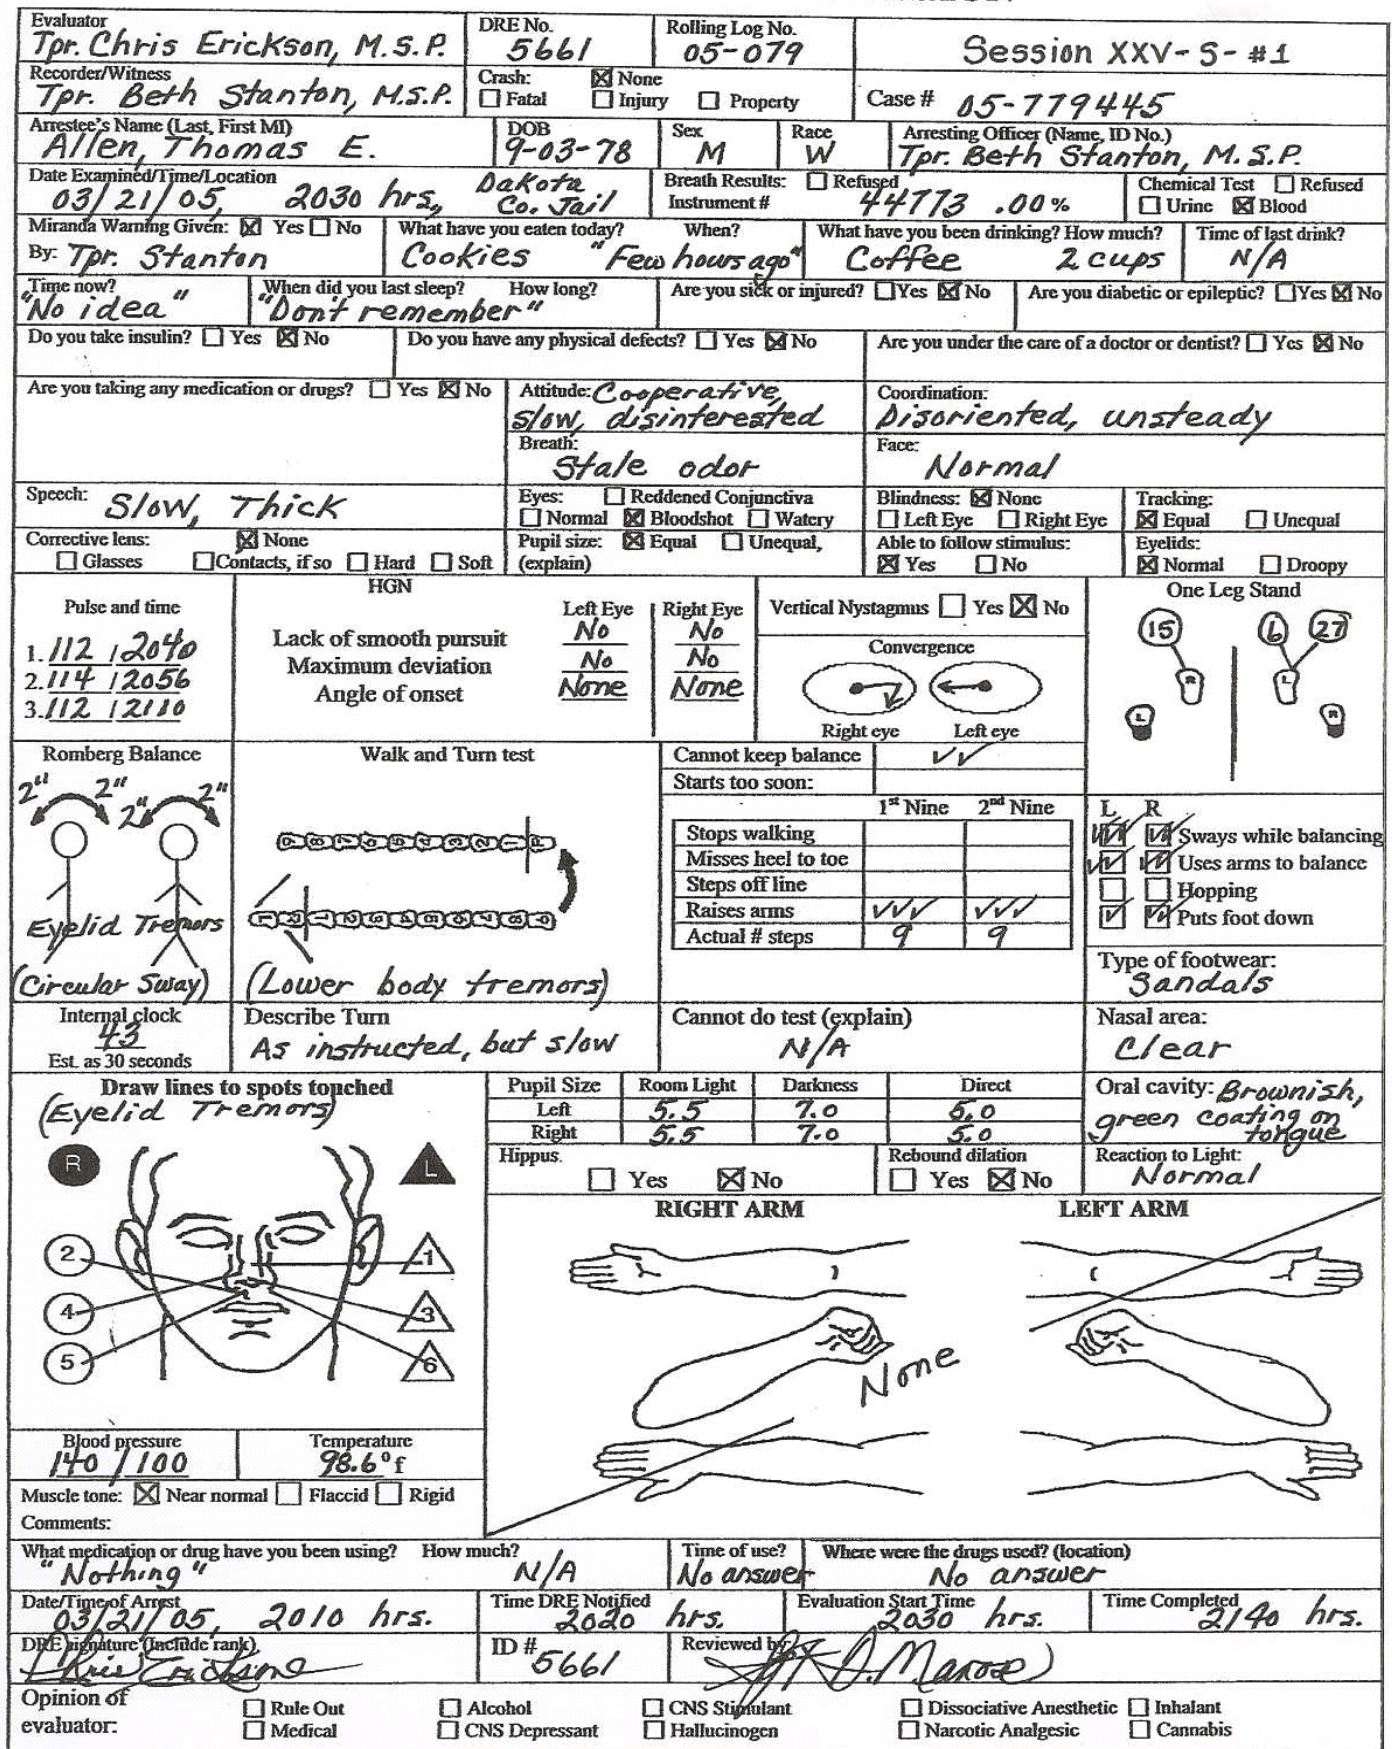 Evaluator
Tpr. Chris Erickson, M.S.P.
DRE No.
5661
Rolling Log No.
05-079
Session XXV-S-#1
Recorder/Witness
Tpr. Beth Stanton, M.S.P.
Crash: ☒ None
☐ Fatal ☐ Injury ☐ Property
Case # 05-779445
Arrestee's Name (Last, First MI)
Allen, Thomas E.
DOB
9-03-78
Sex
M
Race
W
Arresting Officer (Name, ID No.)
Tpr. Beth Stanton, M.S.P.
Date Examined/Time/Location
03/21/05, 2030 hrs, Dakota
Co. Jail
Breath Results: ☐ Refused
Instrument # 44773 .00%
Chemical Test ☐ Refused
☐ Urine ☒ Blood
Miranda Warning Given: ☒ Yes ☐ No
By: Tpr. Stanton
What have you eaten today? When?
Cookies "Few hours ago"
What have you been drinking? How much?
Coffee 2 cups
Time of last drink?
N/A
Time now?
"No idea"
When did you last sleep? How long?
"Don't remember"
Are you sick or injured? ☐ Yes ☒ No
Are you diabetic or epileptic? ☐ Yes ☒ No
Do you take insulin? ☐ Yes ☒ No
Do you have any physical defects? ☐ Yes ☒ No
Are you under the care of a doctor or dentist? ☐ Yes ☒ No
Are you taking any medication or drugs? ☐ Yes ☒ No
Attitude: Cooperative,
slow, disinterested
Coordination:
Disoriented, unsteady
Breath:
Stale odor
Face:
Normal
Speech: Slow, Thick
Eyes: ☐ Reddened Conjunctiva
☐ Normal ☒ Bloodshot ☐ Watery
Blindness: ☒ None
☐ Left Eye ☐ Right Eye
Tracking:
☒ Equal ☐ Unequal
Corrective lens: ☒ None
☐ Glasses ☐ Contacts, if so ☐ Hard ☐ Soft
Pupil size: ☒ Equal ☐ Unequal,
(explain)
Able to follow stimulus:
☒ Yes ☐ No
Eyelids:
☒ Normal ☐ Droopy
Pulse and time
1. 112 / 2040
2. 114 / 2056
3. 112 / 2110
HGN
Left Eye Right Eye
Lack of smooth pursuit No No
Maximum deviation No No
Angle of onset None None
Vertical Nystagmus ☐ Yes ☒ No
Convergence
Right eye Left eye
One Leg Stand
15 6 27
R L
L R
Romberg Balance
2" 2" 2" 2"
Eyelid Tremors
(Circular Sway)
Walk and Turn test
(Lower body tremors)
Cannot keep balance ✓✓
Starts too soon:
1st Nine 2nd Nine
Stops walking
Misses heel to toe
Steps off line
Raises arms ✓✓✓ ✓✓✓
Actual # steps 9 9
L R
Sways while balancing
Uses arms to balance
Hopping
Puts foot down
Type of footwear:
Sandals
Internal clock
43
Est. as 30 seconds
Describe Turn
As instructed, but slow
Cannot do test (explain)
N/A
Nasal area:
Clear
Draw lines to spots touched
(Eyelid Tremors)
R L
2 1
4 3
5 6
Pupil Size Room Light Darkness Direct
Left 5.5 7.0 5.0
Right 5.5 7.0 5.0
Oral cavity: Brownish,
green coating on
tongue
Hippus.
☐ Yes ☒ No
Rebound dilation
☐ Yes ☒ No
Reaction to Light:
Normal
RIGHT ARM LEFT ARM
None
Blood pressure
140 / 100
Temperature
98.6° f
Muscle tone: ☒ Near normal ☐ Flaccid ☐ Rigid
Comments:
What medication or drug have you been using? How much?
"Nothing" N/A
Time of use?
No answer
Where were the drugs used? (location)
No answer
Date/Time of Arrest
03/21/05, 2010 hrs.
Time DRE Notified
2020 hrs.
Evaluation Start Time
2030 hrs.
Time Completed
2140 hrs.
DRE signature (Include rank)
Chris Erickson
ID #
5661
Reviewed by:
Opinion of
evaluator:
☐ Rule Out ☐ Alcohol ☐ CNS Stimulant ☐ Dissociative Anesthetic ☐ Inhalant
☐ Medical ☐ CNS Depressant ☐ Hallucinogen ☐ Narcotic Analgesic ☐ Cannabis